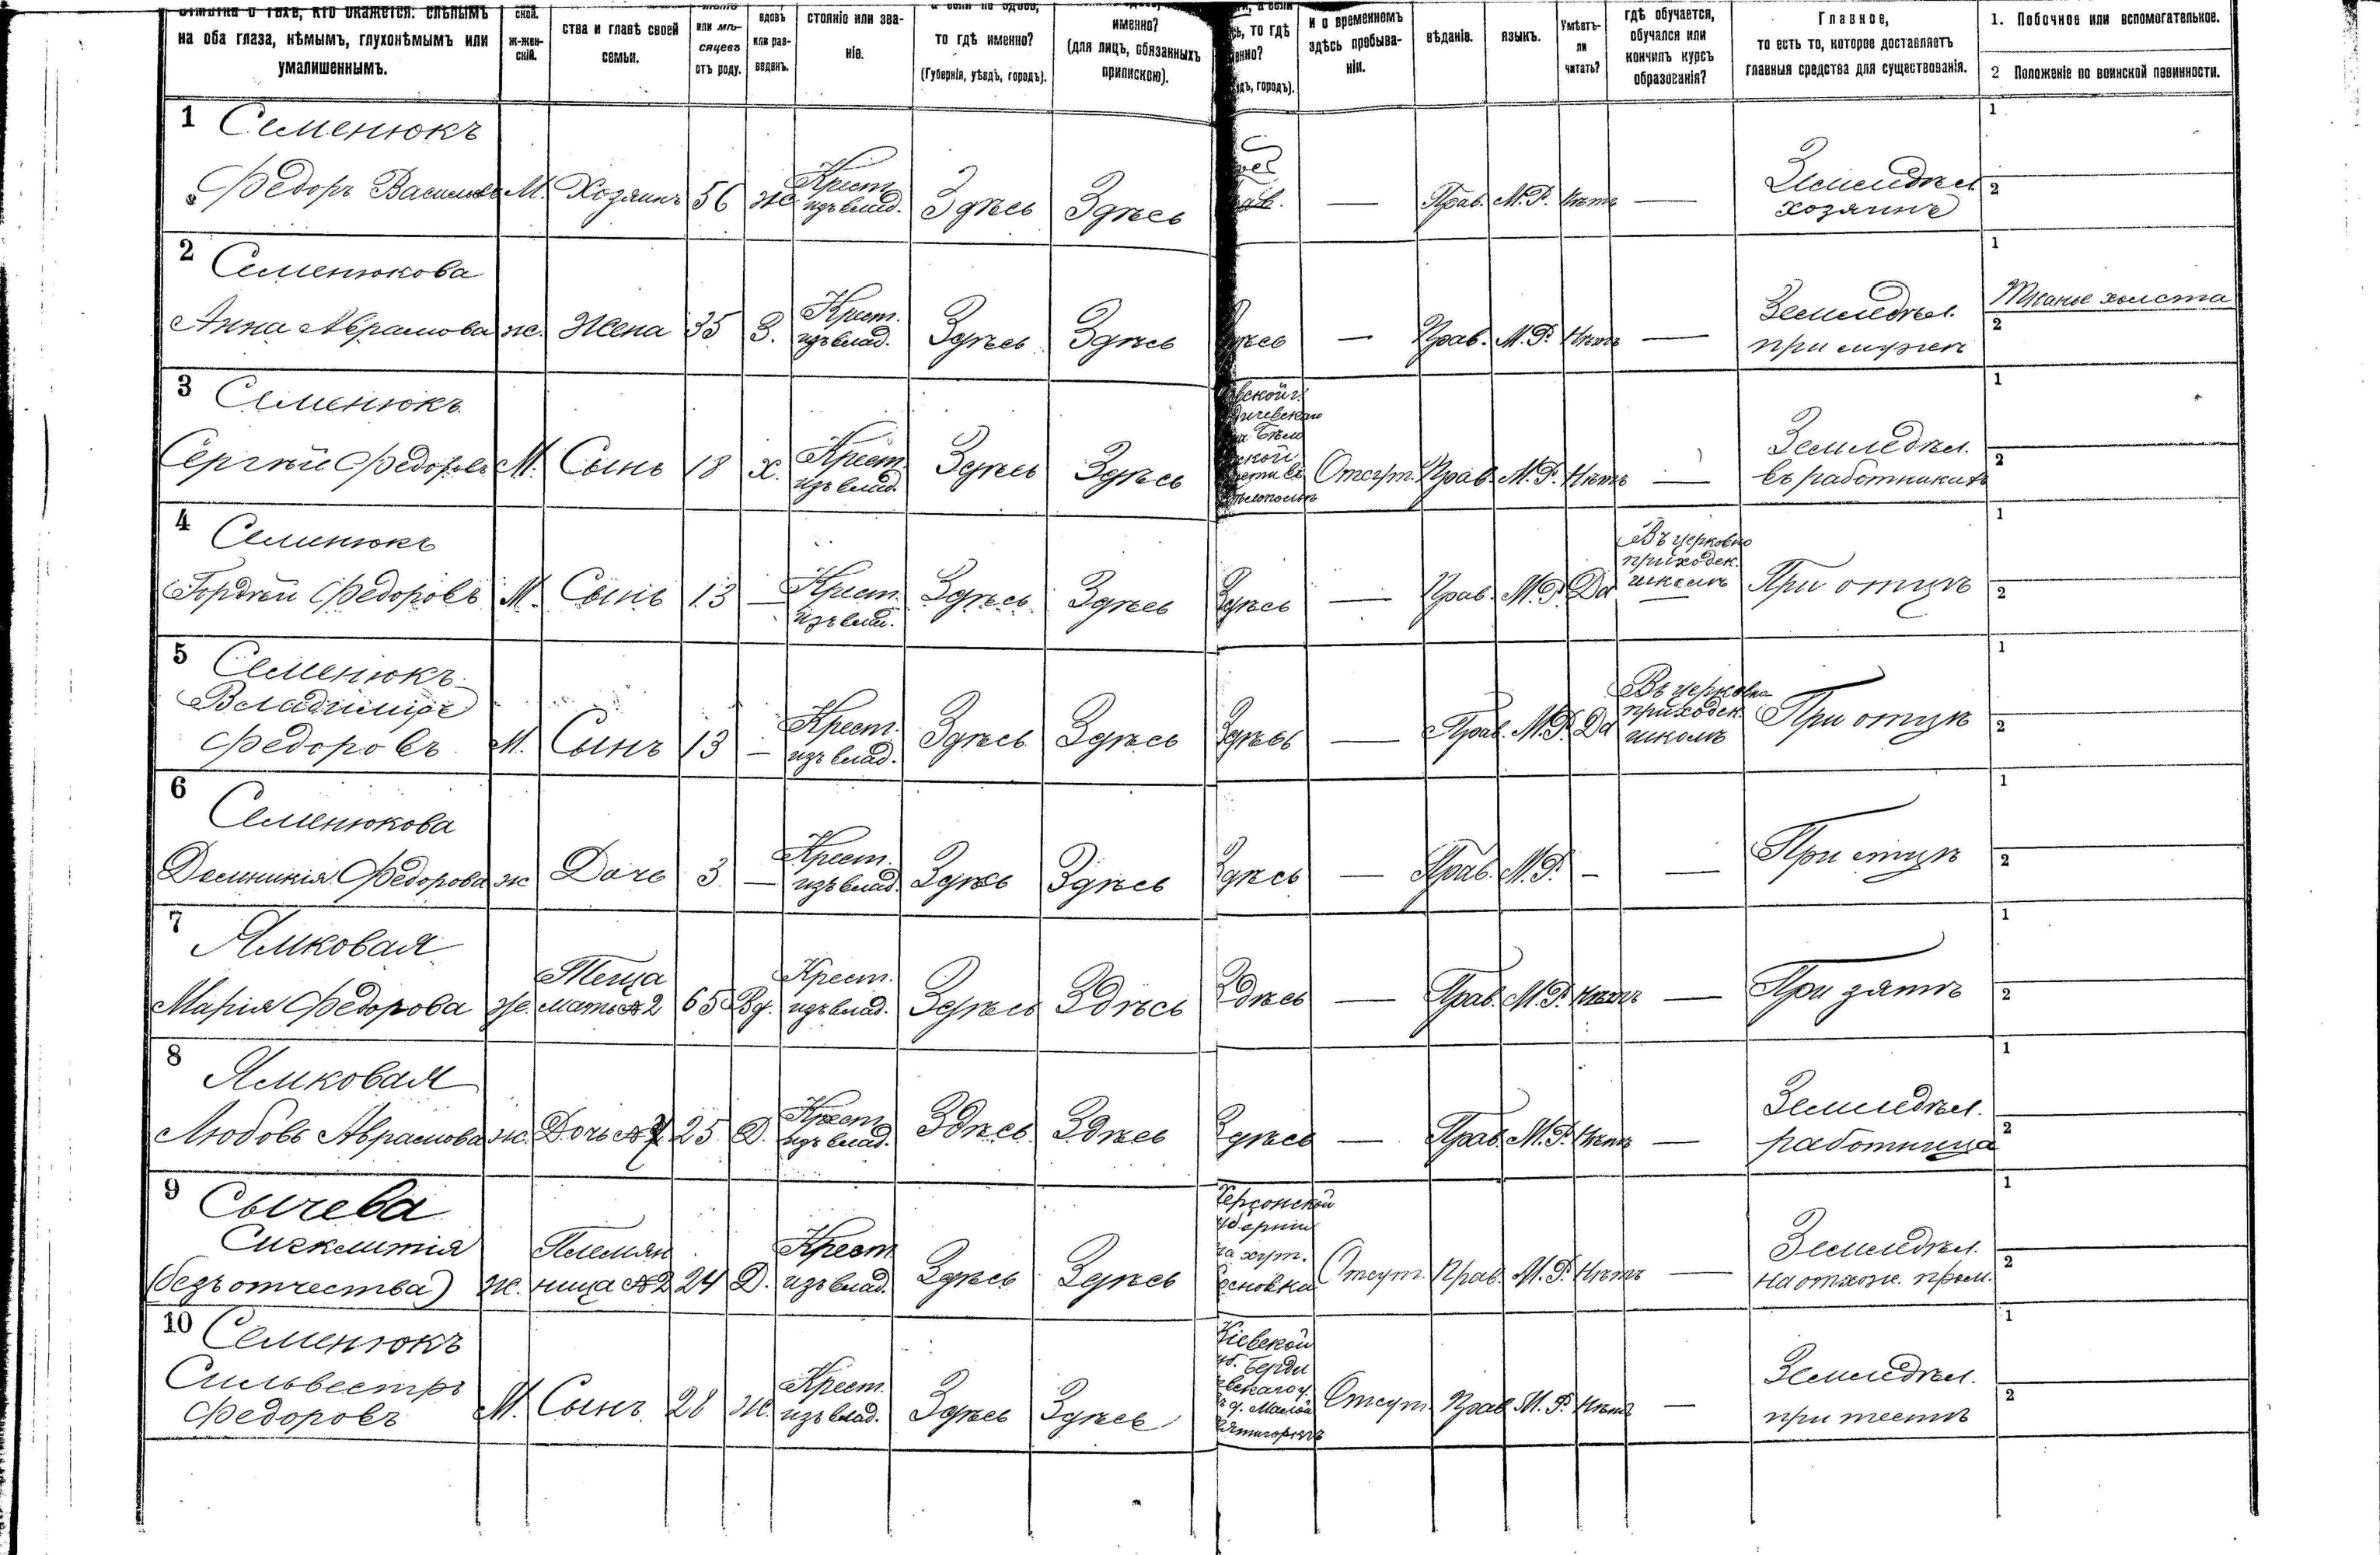 на оба глаза, нѣмымъ, глухонѣмымъ или
умалишеннымъ.
ской.
ж-жен-
скій.
ства и главѣ своей
семьи.
или мѣ-
сяцевъ
отъ роду.
вдовъ
или раз-
веденъ.
стояніе или зва-
ніе.
то гдѣ именно?
(Губернія, уѣздъ, городъ).
именно?
(для лицъ, обязанныхъ
припискою).
то гдѣ
городъ).
и о временномъ
здѣсь пребыва-
ніи.
вѣданіе.
языкъ.
Умѣетъ-
ли
читать?
гдѣ обучается,
обучался или
кончилъ курсъ
образованія?
Главное,
то есть то, которое доставляетъ
главныя средства для существованія.
1. Побочное или вспомогательное.
2 Положеніе по воинской повинности.
1 Семенюкъ
Федоръ Васильевъ М. Хозяинъ 56 Ж. Крест. изъ влад. Здѣсь Здѣсь — Прав. М.Р. Нѣтъ — Земледѣл. хозяинъ 1 2
2 Семенюкова
Анна Аврамова ж. Жена 35 З. Крест. изъ влад. Здѣсь Здѣсь Здѣсь — Прав. М.Р. Нѣтъ — Земледѣл. при мужѣ 1 Тканье холста 2
3 Семенюкъ
Сергѣй Федоровъ М. Сынъ 18 Х. Крест. изъ влад. Здѣсь Здѣсь Отсут. Прав. М.Р. Нѣтъ — Земледѣл. въ работникахъ 1 2
4 Семенюкъ
Гордѣй Федоровъ М. Сынъ 13 — Крест. изъ влад. Здѣсь Здѣсь Здѣсь — Прав. М.Р. Да Въ церковно приходск. школѣ При отцѣ 1 2
5 Семенюкъ
Владиміръ
Федоровъ М. Сынъ 13 — Крест. изъ влад. Здѣсь Здѣсь Здѣсь — Прав. М.Р. Да Въ церковно приходск. школѣ При отцѣ 1 2
6 Семенюкова
Домникія Федорова ж Дочь 3 — Крест. изъ влад. Здѣсь Здѣсь Здѣсь — Прав. М.Р. - — При отцѣ 1 2
7 Ямковая
Марія Федорова ж. Теща мать №2 65 Вд. Крест. изъ влад. Здѣсь Здѣсь Здѣсь — Прав. М.Р. Нѣтъ — При зятѣ 1 2
8 Ямковая
Любовь Аврамова ж. Дочь №7 25 Д. Крест. изъ влад. Здѣсь Здѣсь Здѣсь — Прав. М.Р. Нѣтъ — Земледѣл. работница 1 2
9 Сычева
Сигклитія
(безъ отчества) ж. Племянница №2 24 Д. Крест. изъ влад. Здѣсь Здѣсь Херсонской губерніи на хут. Отсут. Прав. М.Р. Нѣтъ — Земледѣл. на отхож. пром. 1 2
10 Семенюкъ
Сильвестръ
Федоровъ М. Сынъ 28 Ж. Крест. изъ влад. Здѣсь Здѣсь Кіевской губ. Отсут. Прав. М.Р. Нѣтъ — Земледѣл. при тестѣ 1 2